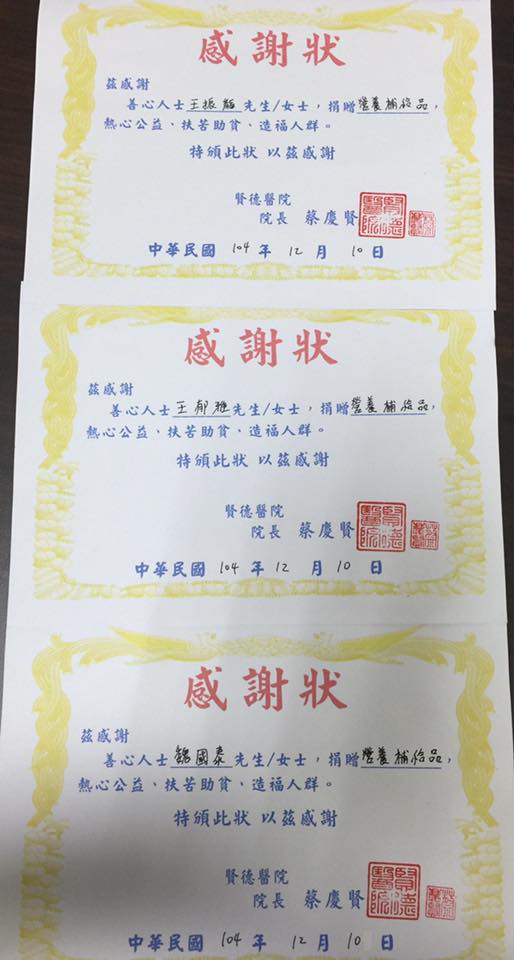 感謝狀
茲感謝
善心人士王振 先生/女士，捐贈營養補給品，
熱心公益、扶苦助貧、造福人群。
特頒此狀 以茲感謝
賢德醫院
院長 蔡慶賢 賢德醫院
中華民國 104 年 12 月 10 日
感謝狀
茲感謝
善心人士王郁雅先生/女士，捐贈營養補給品，
熱心公益、扶苦助貧、造福人群。
特頒此狀 以茲感謝
賢德醫院
院長 蔡慶賢 賢德醫院
中華民國 104 年 12 月 10 日
感謝狀
茲感謝
善心人士魏國泰先生/女士，捐贈營養補給品，
熱心公益、扶苦助貧、造福人群。
特頒此狀 以茲感謝
賢德醫院
院長 蔡慶賢 賢德醫院
中華民國 104 年 12 月 10 日